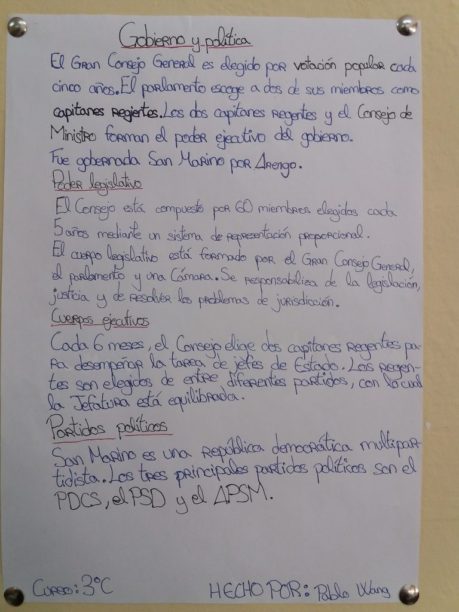 Gobierno y política
El Gran Consejo General es elegido por votación popular cada
cinco años. El parlamento escoge a dos de sus miembros como
capitanes regientes. Los dos capitanes regentes y el Consejo de
Ministro forman el poder ejecutivo del gobierno.
Fue gobernada San Marino por Arengo.
Poder legislativo
El Consejo está compuesto por 60 miembros elegidos cada
5 años mediante un sistema de representación proporcional.
El cuerpo legislativo está formado por el Gran Consejo General,
el parlamento y una Cámara. Se responsabiliza de la legislación,
justicia y de resolver los problemas de jurisdicción.
Cuerpos ejecutivos
Cada 6 meses, el Consejo elige dos capitanes regentes pa-
ra desempeñar la tarea de jefes de Estado. Los regen-
tes son elegidos de entre diferentes partidos, con lo cual
la Jefatura está equilibrada.
Partidos políticos
San Marino es una república democrática multipar-
tidista. Los tres principales partidos políticos son el
PDCS, el PSD y el APSM.
Curso: 3ºC HECHO POR: Pablo Wang